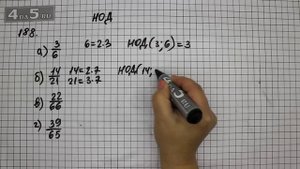 4·5.ru
НОД
188.
а) 3/6 6=2·3 НОД(3;6)=3
б) 14/21 14=2·7 НОД(14;
21=3·7
в) 22/66
г) 39/65